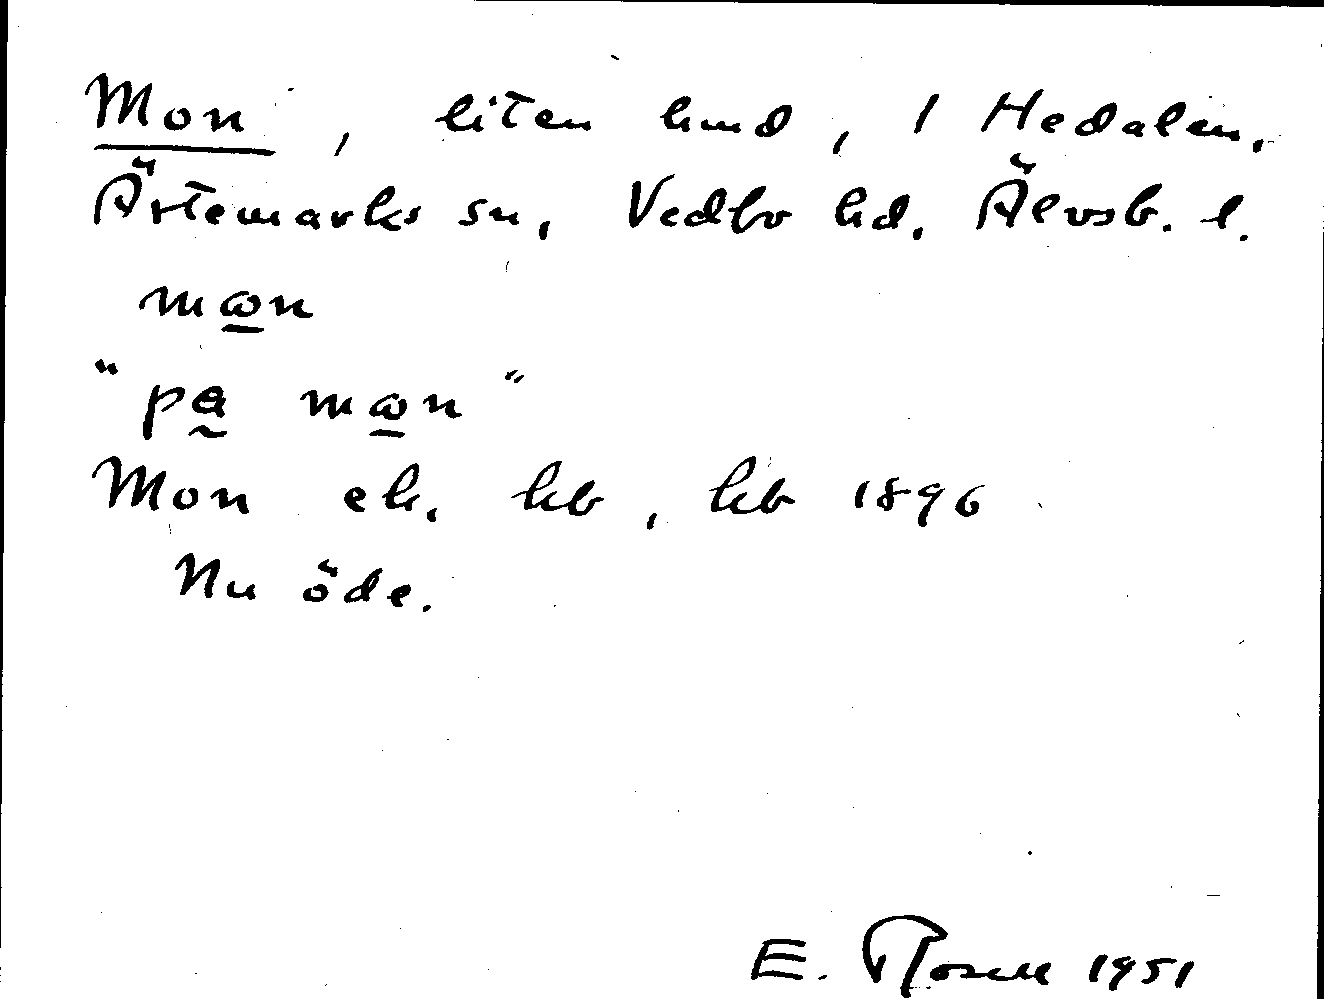 Mon, liten lmd, 1 Hedalen,
Ärtemarks sn, Vedbo hd. Älvsb. l.
mωn
"pa mωn"
Mon ek. kb, kb 1896
Nu öde.
E. Rosell 1951